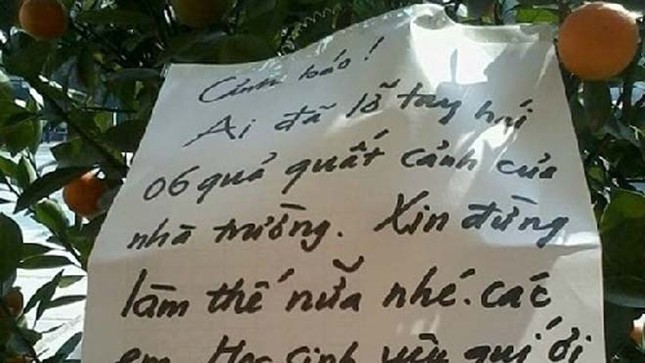 Cảnh báo!
Ai đã lỡ tay hái
06 quả quất cảnh của
nhà trường. Xin đừng
làm thế nữa nhé. các
em Học sinh yêu quí ới